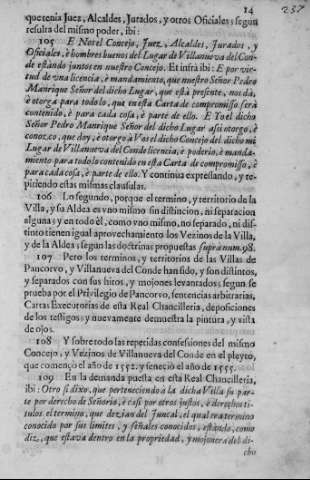 14
237
que tenia Juez, Alcaldes, Jurados, y otros Oficiales; segun
resulta del mismo poder, ibi:
105 E Nos el Concejo, Juez, Alcaldes, Jurados, y
Oficiales, è hombres buenos del Lugar de Villanueva del Con-
de estando juntos en nuestro Concejo. Et infrà ibi: E por vir-
tud de vna licencia, è mandamiento, que nuestro Señor Pedro
Manrique Señor del dicho Lugar, que està presente, nos dà,
è otorga para todo lo, que en esta Carta de compromisso serà
contenido, è para cada cosa, è parte de ello. E Yo el dicho
Señor Pedro Manrique Señor del dicho Lugar assi otorgo, è
conozco, que doy, è otorgo à Vos el dicho Concejo del dicho mi
Lugar de Villanueva del Conde licencia, è poderio, è manda-
miento para todo lo contenido en esta Carta de compromisso, è
para cada cosa, è parte de ella. Y continua expressando, y re-
pitiendo estas mismas clausulas.
106 Lo segundo, porque el termino, y territorio de la
Villa, y su Aldea es vno mismo sin distincion, ni separacion
alguna; y en todo èl, como vno mismo, no separado, ni dis-
tinto tienen igual aprovechamiento los Vezinos de la Villa,
y de la Aldea; segun las doctrinas propuestas supra num. 98.
107 Pero los terminos, y territorios de las Villas de
Pancorvo, y Villanueva del Conde han sido, y son distintos,
y separados con sus hitos, y mojones levantados; segun se
prueba por el Privilegio de Pancorvo, sentencias arbitrarias,
Cartas Executorias de esta Real Chancilleria, deposiciones
de los testigos; y nuevamente demuestra la pintura, y vista
de ojos.
108 Y sobre todo las repetidas confessiones del mismo
Concejo, y Vezinos de Villanueva del Conde en el pleyto,
que començò el año de 1552. y feneciò el año de 1555.
109 En la demanda puesta en esta Real Chancilleria,
ibi: Otro si dixo, que perteneciendo à la dicha Villa su par-
te por derecho de Señorio, è casi por otros justos, è derechos ti-
tulos el termino, que dezian del Juncal, el qual era termino
conocido por sus limites, y señales conocidos, estando, como
diz, que estava dentro en la propriedad, y mojonera del di-
cho